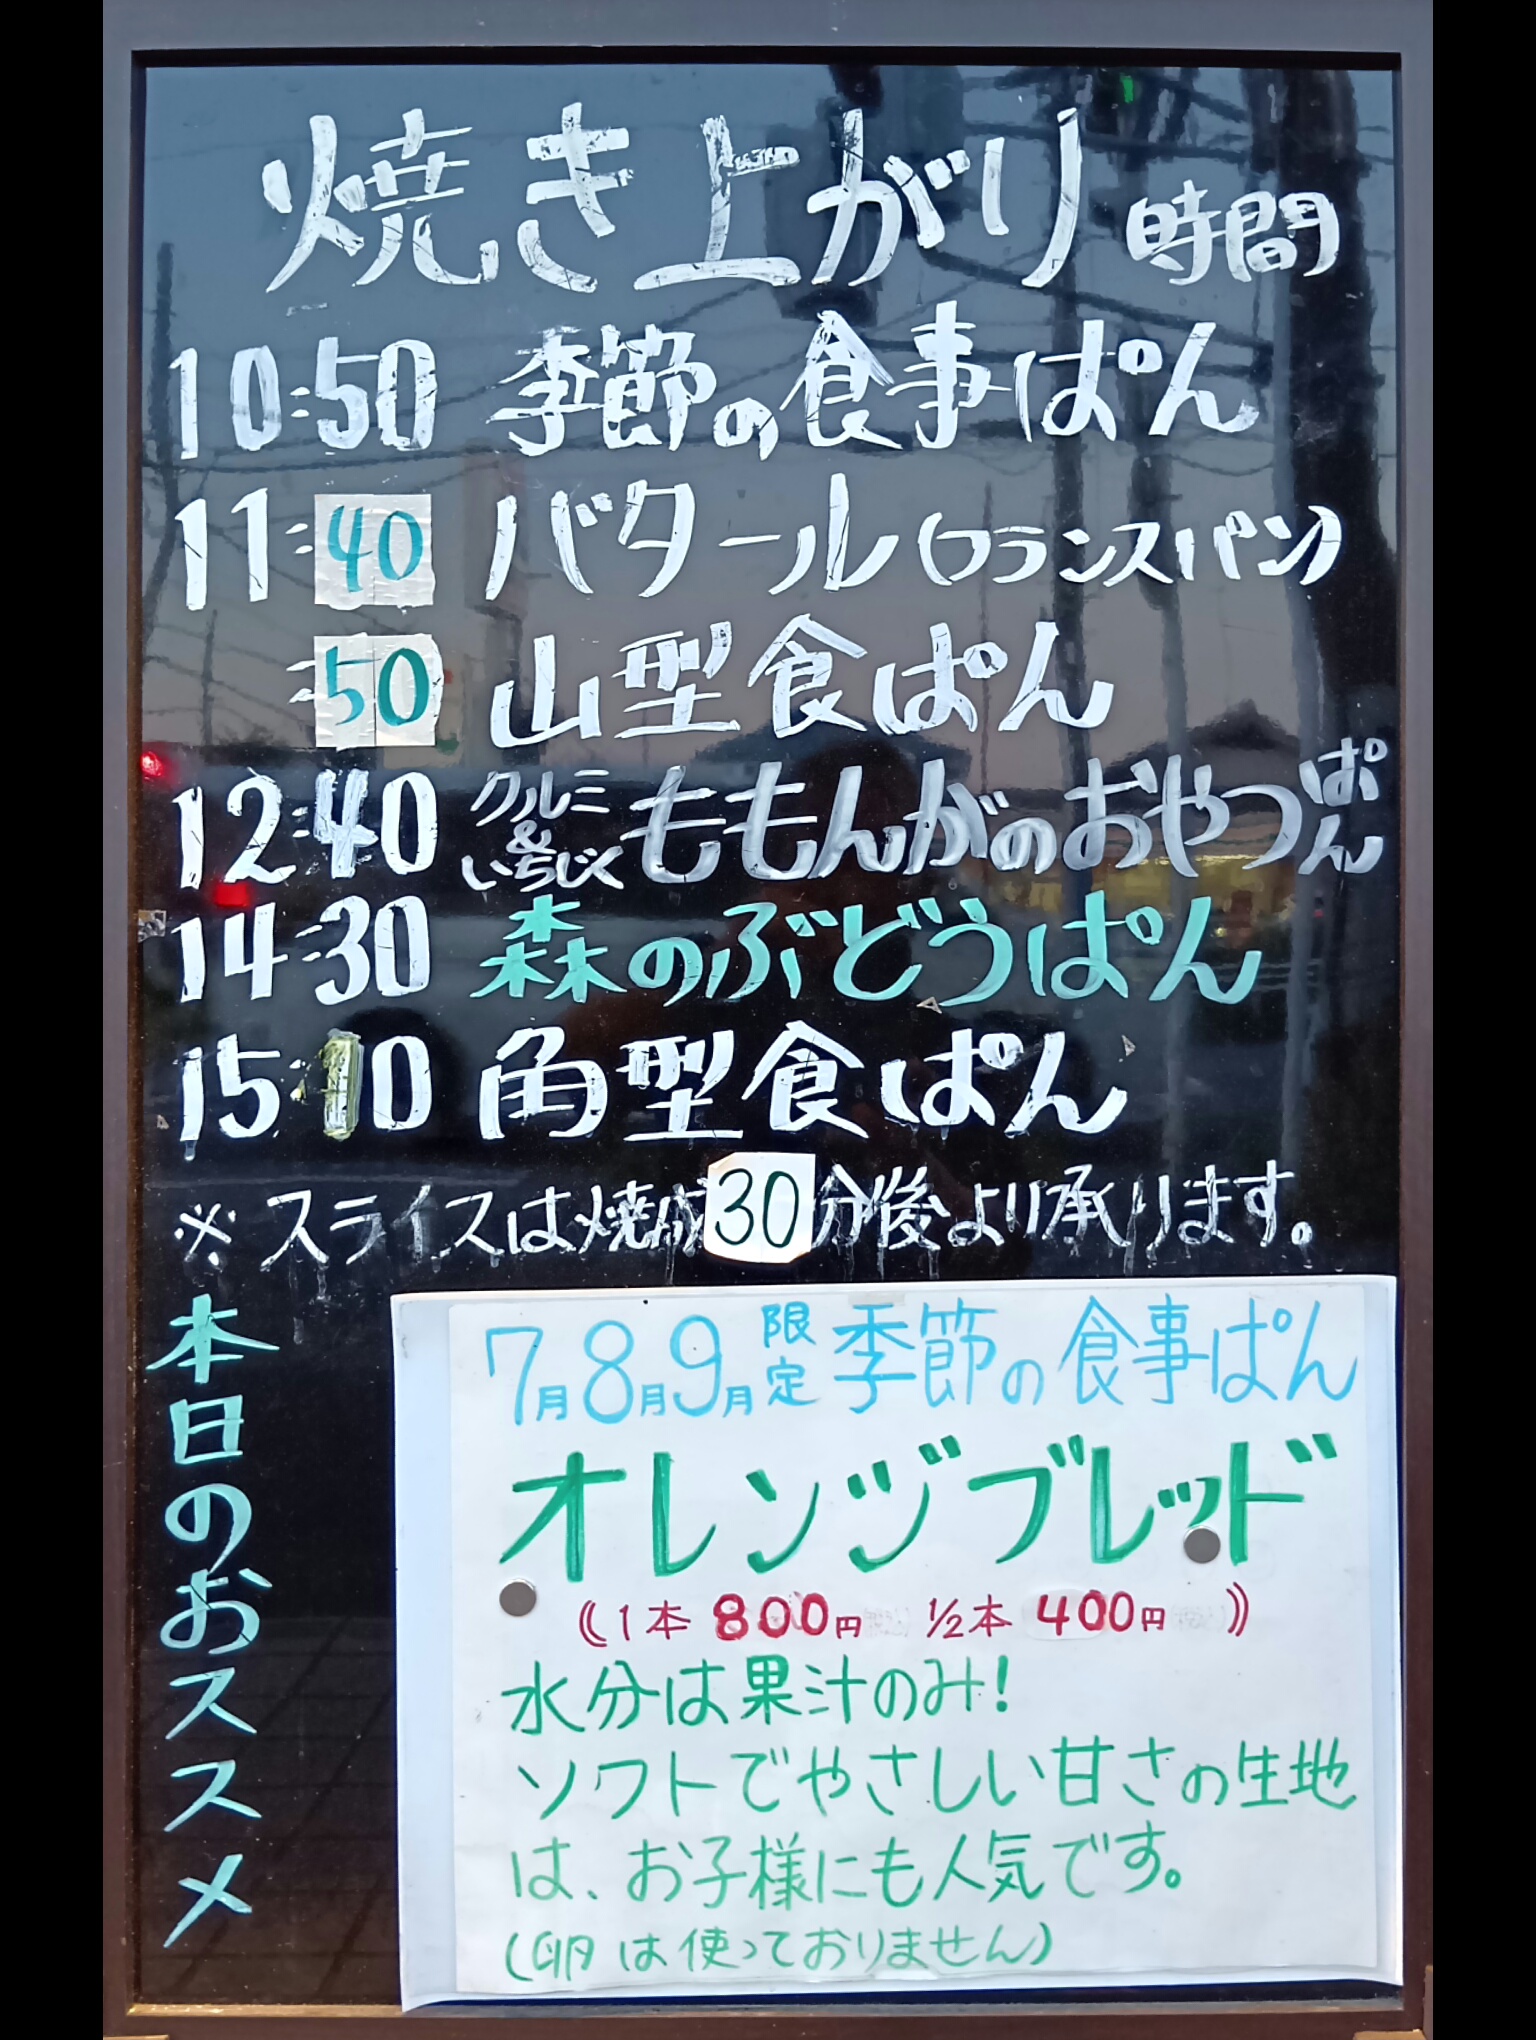 焼き上がり時間
10:50 季節の食事ぱん
11:40 バタール(フランスパン)
:50 山型食ぱん
12:40 クルミ&いちじく ももんがのおやつぱん
14:30 森のぶどうぱん
15:10 角型食ぱん
※スライスは焼成30分後より承ります。
本日のおススメ
7月8月9月限定 季節の食事ぱん
オレンジブレッド
((1本 800円 1/2本 400円 ))
水分は果汁のみ!
ソフトでやさしい甘さの生地
は、お子様にも人気です。
(卵は使っておりません)